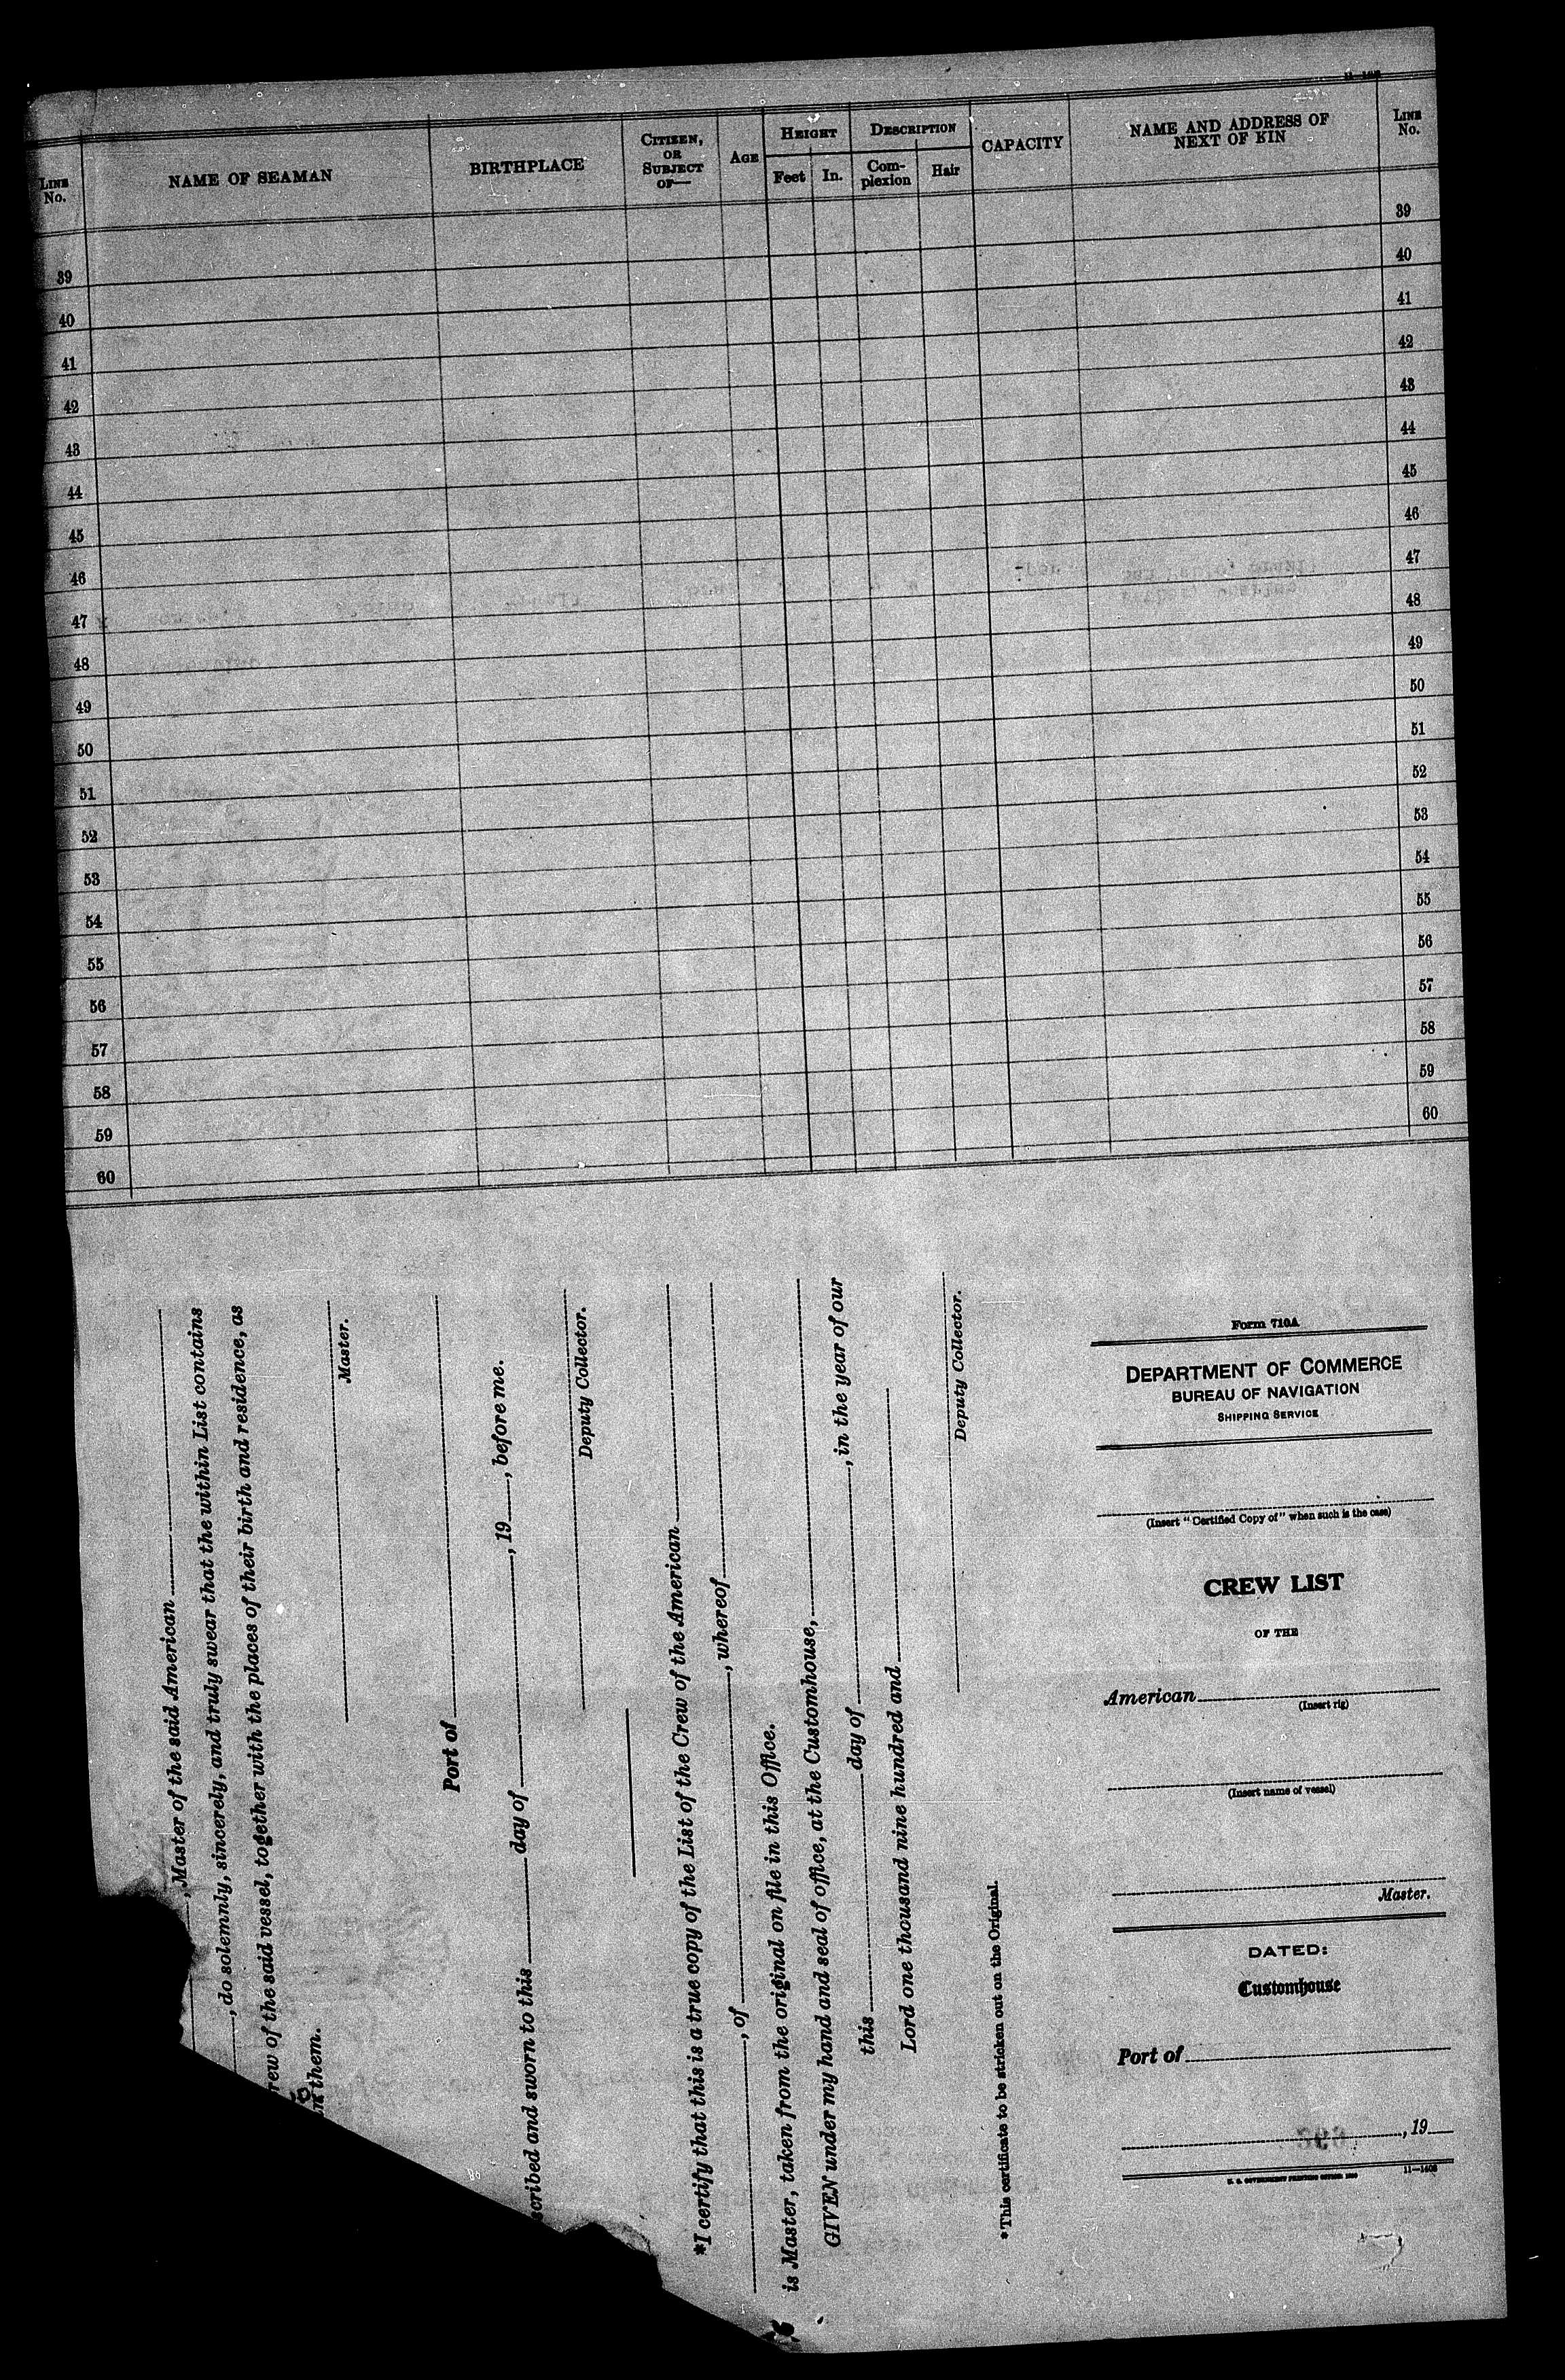 LINE No.
NAME OF SEAMAN
BIRTHPLACE
CITIZEN, OR SUBJECT OF—
AGE
HEIGHT
Feet
In.
DESCRIPTION
Complexion
Hair
CAPACITY
NAME AND ADDRESS OF NEXT OF KIN
LINE No.
39 39
40 40
41 41
42 42
43 43
44 44
45 45
46 46
47 47
48 48
49 49
50 50
51 51
52 52
53 53
54 54
55 55
56 56
57 57
58 58
59 59
60 60
, Master of the said American
, do solemnly, sincerely, and truly swear that the within List contains
rew of the said vessel, together with the places of their birth and residence, as
them.
Master.
Port of
scribed and sworn to this day of , 19 , before me.
Deputy Collector.
*I certify that this is a true copy of the List of the Crew of the American
, of , whereof
is Master, taken from the original on file in this Office.
GIVEN under my hand and seal of office, at the Customhouse,
this day of , in the year of our
Lord one thousand nine hundred and
Deputy Collector.
*This certificate to be stricken out on the Original.
Form 710A
DEPARTMENT OF COMMERCE
BUREAU OF NAVIGATION
SHIPPING SERVICE
(Insert "Certified Copy of" when such is the case)
CREW LIST
OF THE
American
(Insert rig)
(Insert name of vessel)
Master.
DATED:
Customhouse
Port of
, 19
U. S. GOVERNMENT PRINTING OFFICE